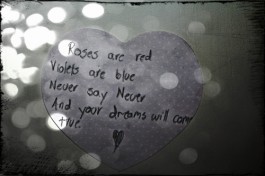 Roses are red
Violets are blue
Never say Never
And your dreams will come
true.